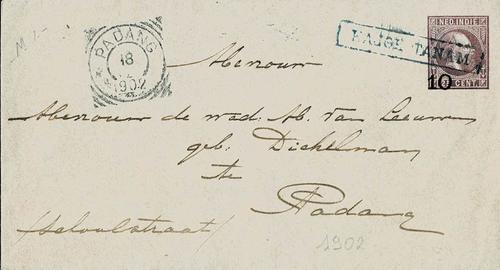 PADANG
18
1902
KAJOE TANAM
NED. INDIE
10
CENT
Mevrouw
Mevrouw de wed. M. van Leeuwen
geb. Dickelman
te
Padang
(Schoolstraat)
1902